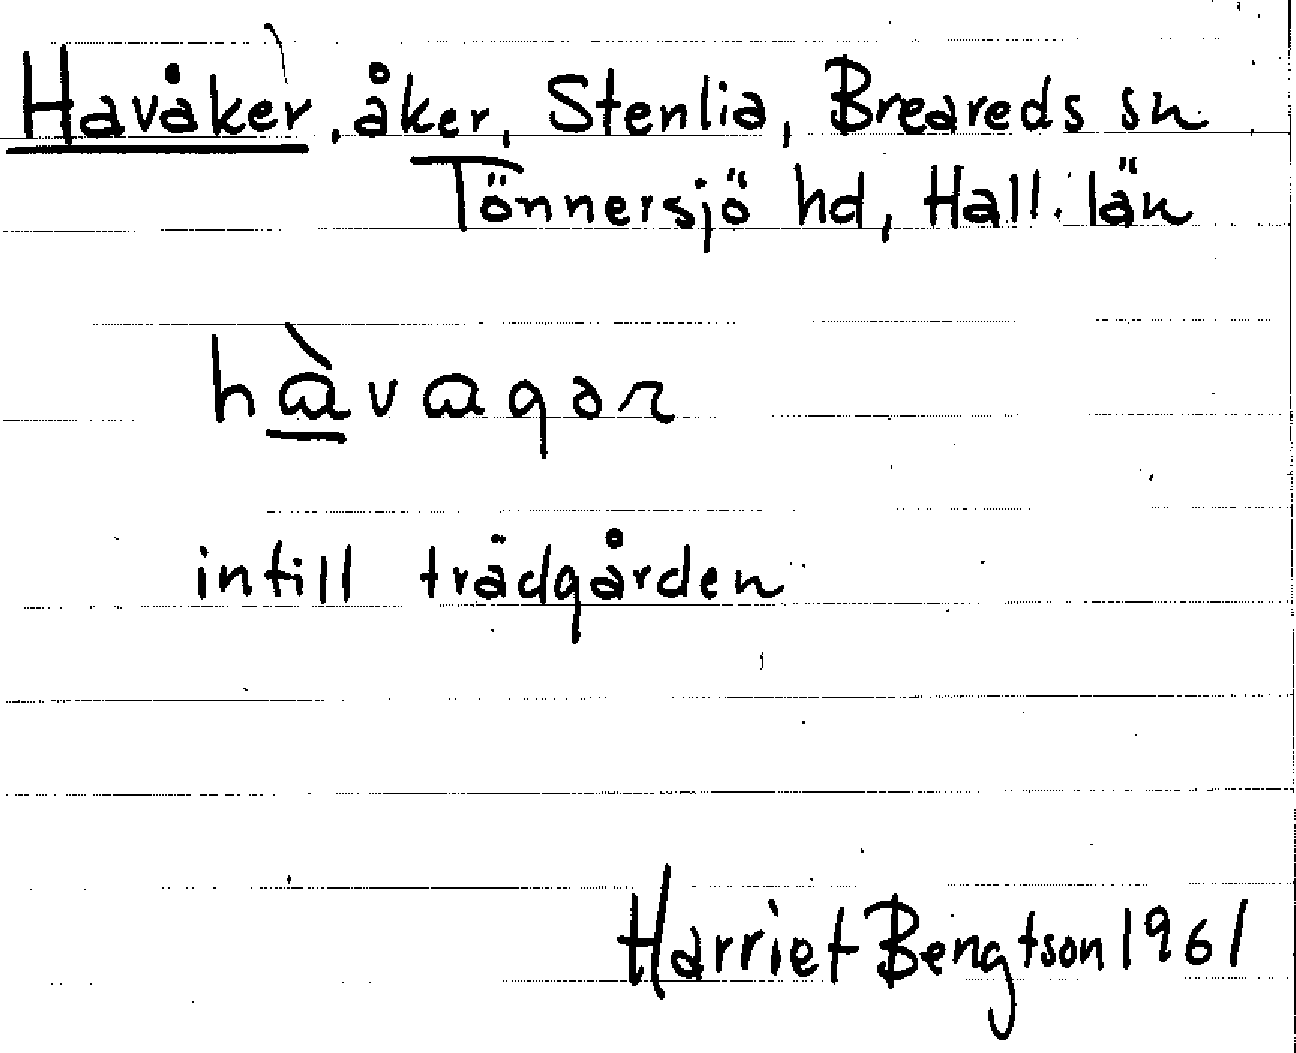 Havåker, åker, Stenlia, Breareds sn
Tönnersjö hd, Hall. län
hàvagər
intill trädgården
Harriet Bengtson 1961